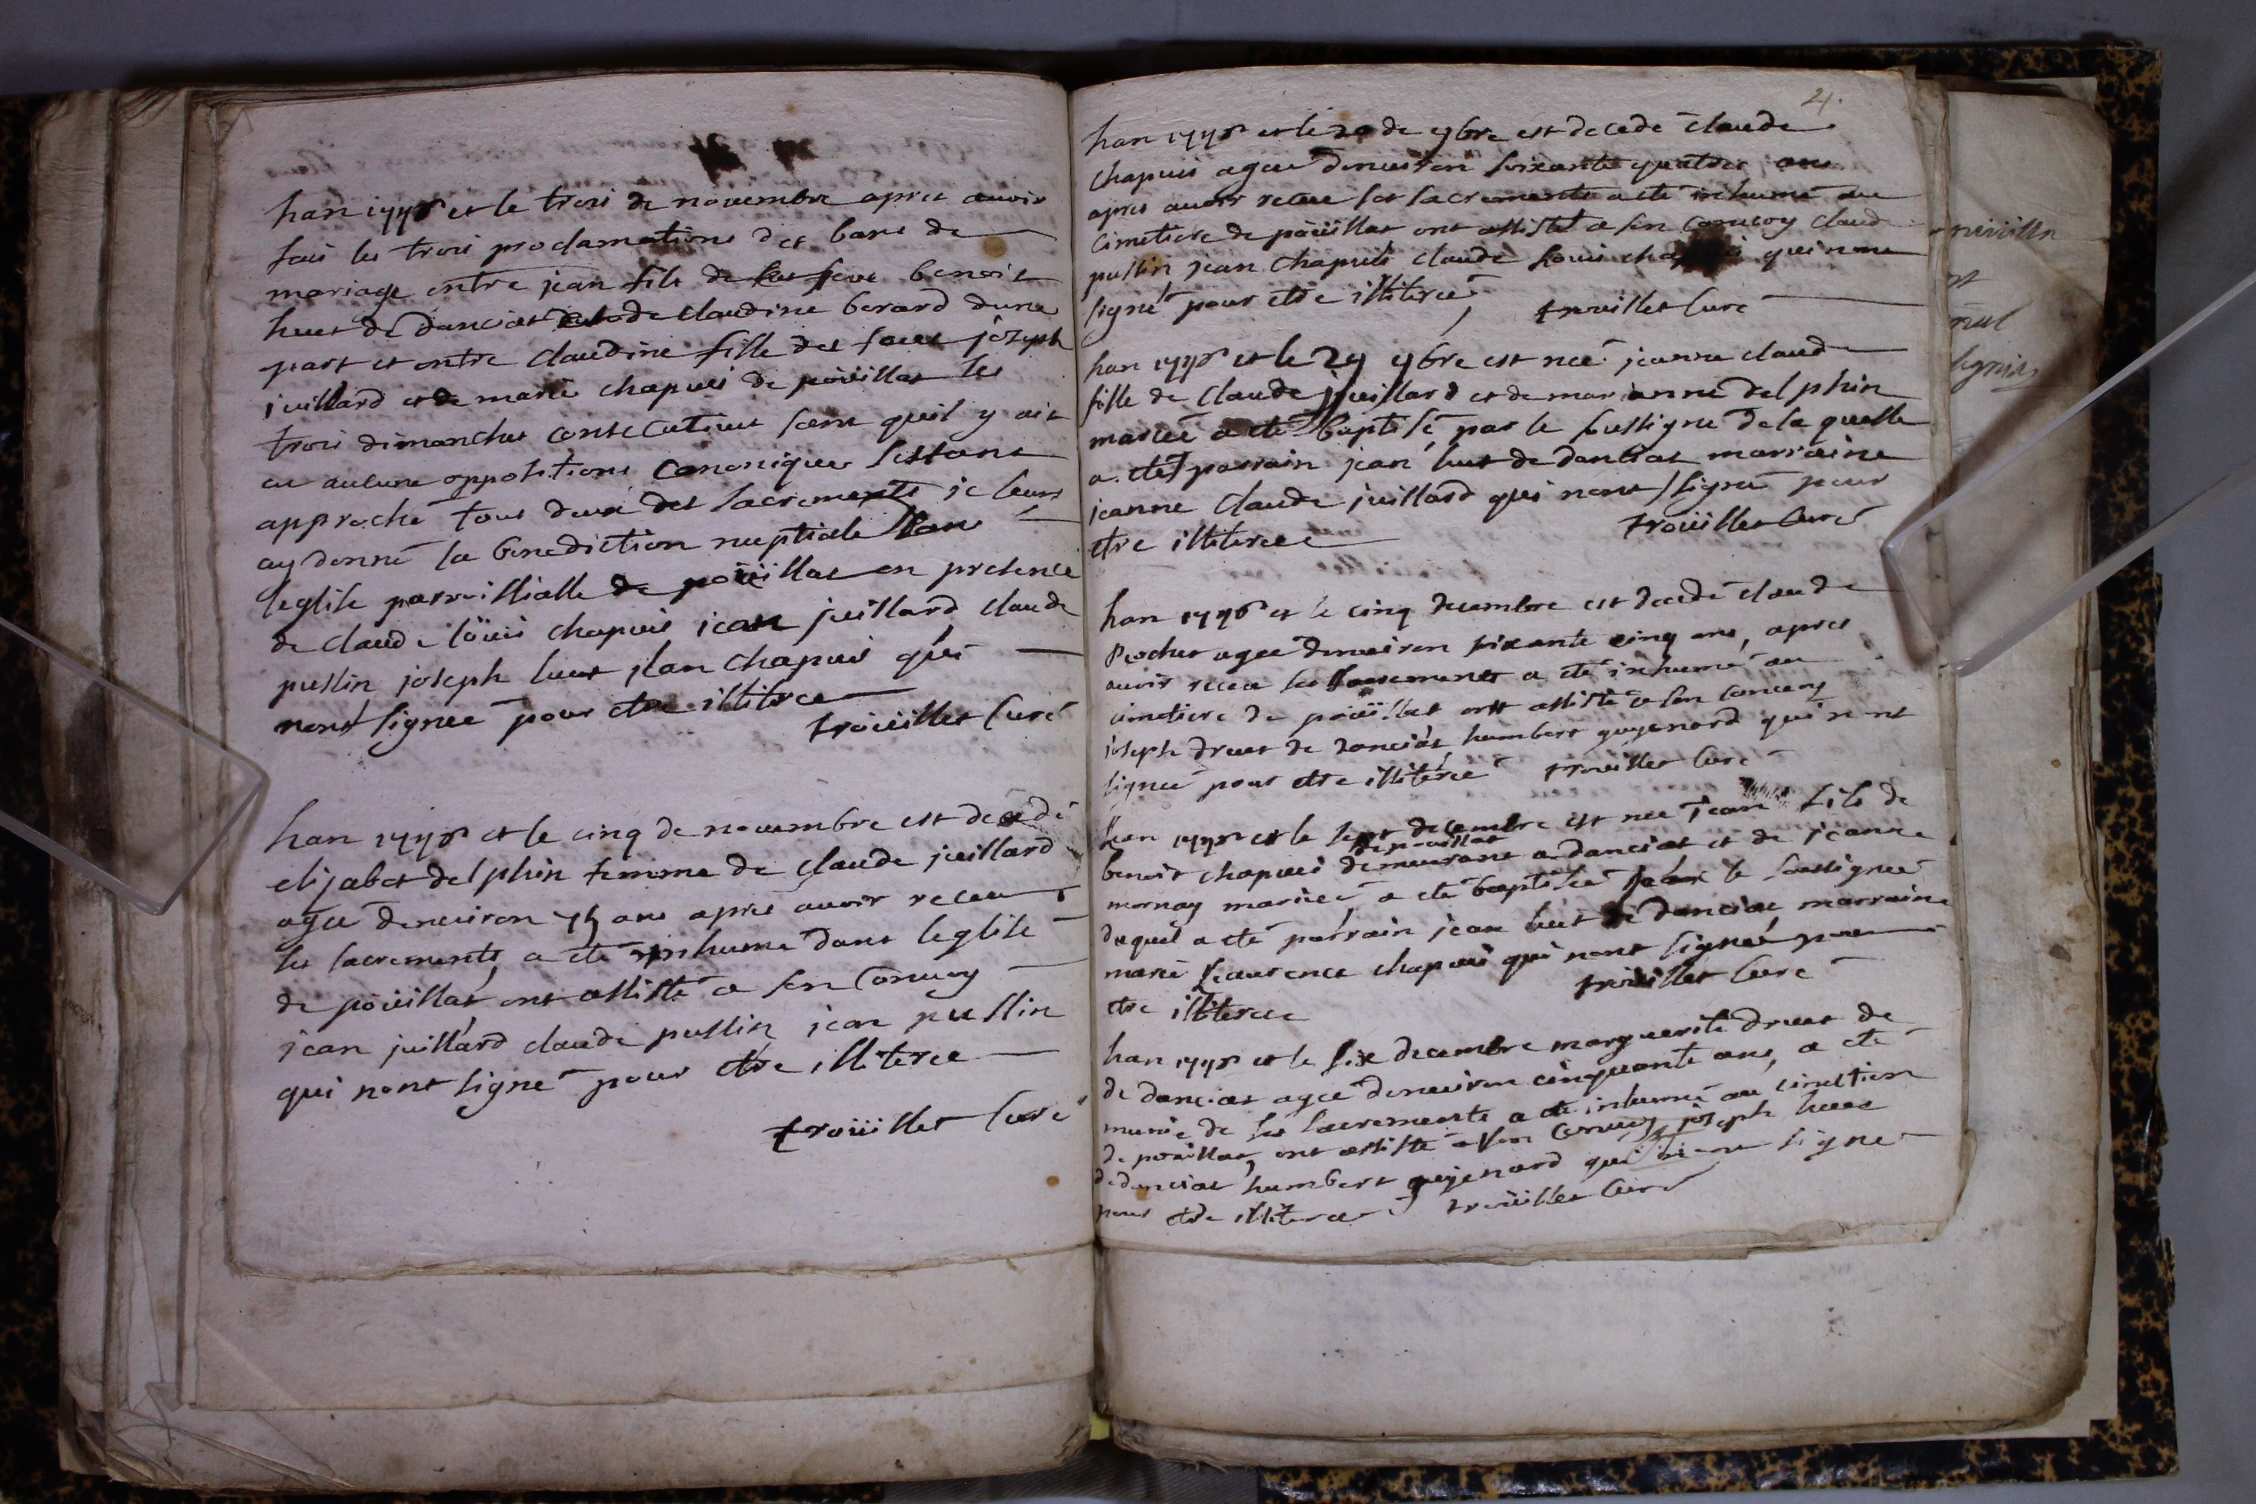 han 1778 et le trois de novembre apres auoir
fais les trois proclamations des bans de
mariage entre jean fils de feue benoit
huet de danciat et de claudine berard dune
part et entre claudine fille des feues joseph
juillard et de marie chapuis de poüillat les
trois dimanches consecutiues sans quil y ait
eu aulcune oppositions canoniques sestans
approché tous deux des sacrements je leurs
ay donné la benediction nuptiale dans
leglise parroissialle de poüillat en presence
de claude loüis chapuis jean juillard claude
pussin joseph huet jlan chapuis qui
nont signee pour etre illiteree
troüillet curé
han 1778 et le cinq de nouembre est decedé
elizabet delphin femme de claude juillard
agee denuiron 75 ans apres auoir receu
les sacrements a eté inhume dans leglise
de poüillat ont assisté a son conuoy
jean juillard claude pussin jean pussin
qui nont signé pour etre illiteree
troüillet curé
21.
han 1778 et le 20 de 9bre est decede claude
chapuis agee denuiron soixante quatre ans
apres auoir receu ses sacrements a ete inhumé au
cimetiere de poüillat ont assisté a son conuoy claude
pussin jean chapuis claude louis chapuis qui nont
signé pour etre illiteree troüillet curé
han 1778 et le 29 9bre est neé jeanne claude
fille de claude juillard et de marianne delphin
mariéé a eté baptisé par le soussigné de la quelle
a eté parrain jean huet de danciat marraine
jeanne claude juillard qui nont signé pour
etre illiteree troüillet curé
han 1778 et le cinq decembre est decedé claude
agee denuiron soixante cinq ans, apres
auoir receu les sacrements a eté inhumé au
cimetiere de poüillat ont assisté a son conuoy
joseph druet de danciat humbert guyenard qui nont
signeé pour etre illiteree troüillet curé
han 1778 et le sept decembre est nee jean fils de
de poüillat
benoit chapuis demeurant a danciat et de jeanne
mornay mariéé a eté baptisée par le soussignee
duquel a eté parrain jean huet de danciat marraine
marie laurence chapuis qui nont signeé pour
etre illiteree troüillet curé
han 1778 et le six decembre marguerite druet de
de danciat agee denuiron cinquante ans, a eté
munie de ses sacrements a eté inhumé au cimetiere
de poüillat, ont assisté a son conuoy joseph huet
de danciat humbert guyenard qui nont signé
pour etre illiteree troüillet curé